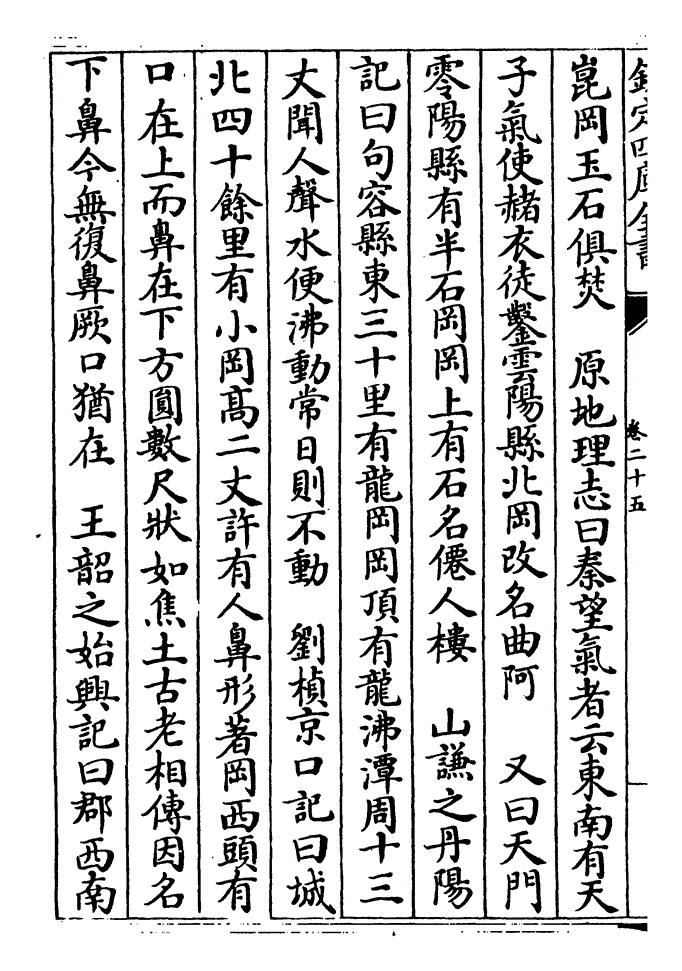 欽定四庫全書
卷二十五
崑岡玉石俱焚　原地理志曰秦望氣者云東南有天
子氣使赭衣徒鑿雲陽縣北岡改名曲阿　又曰天門
零陽縣有半石岡岡上有石名僊人樓　山謙之丹陽
記曰句容縣東三十里有龍岡岡頂有龍沸潭周十三
丈聞人聲水便沸動常日則不動　劉楨京口記曰城
北四十餘里有小岡高二丈許有人鼻形著岡西頭有
口在上而鼻在下方圓數尺狀如焦土古老相傳因名
下鼻今無復鼻厥口猶在　王韶之始興記曰郡西南